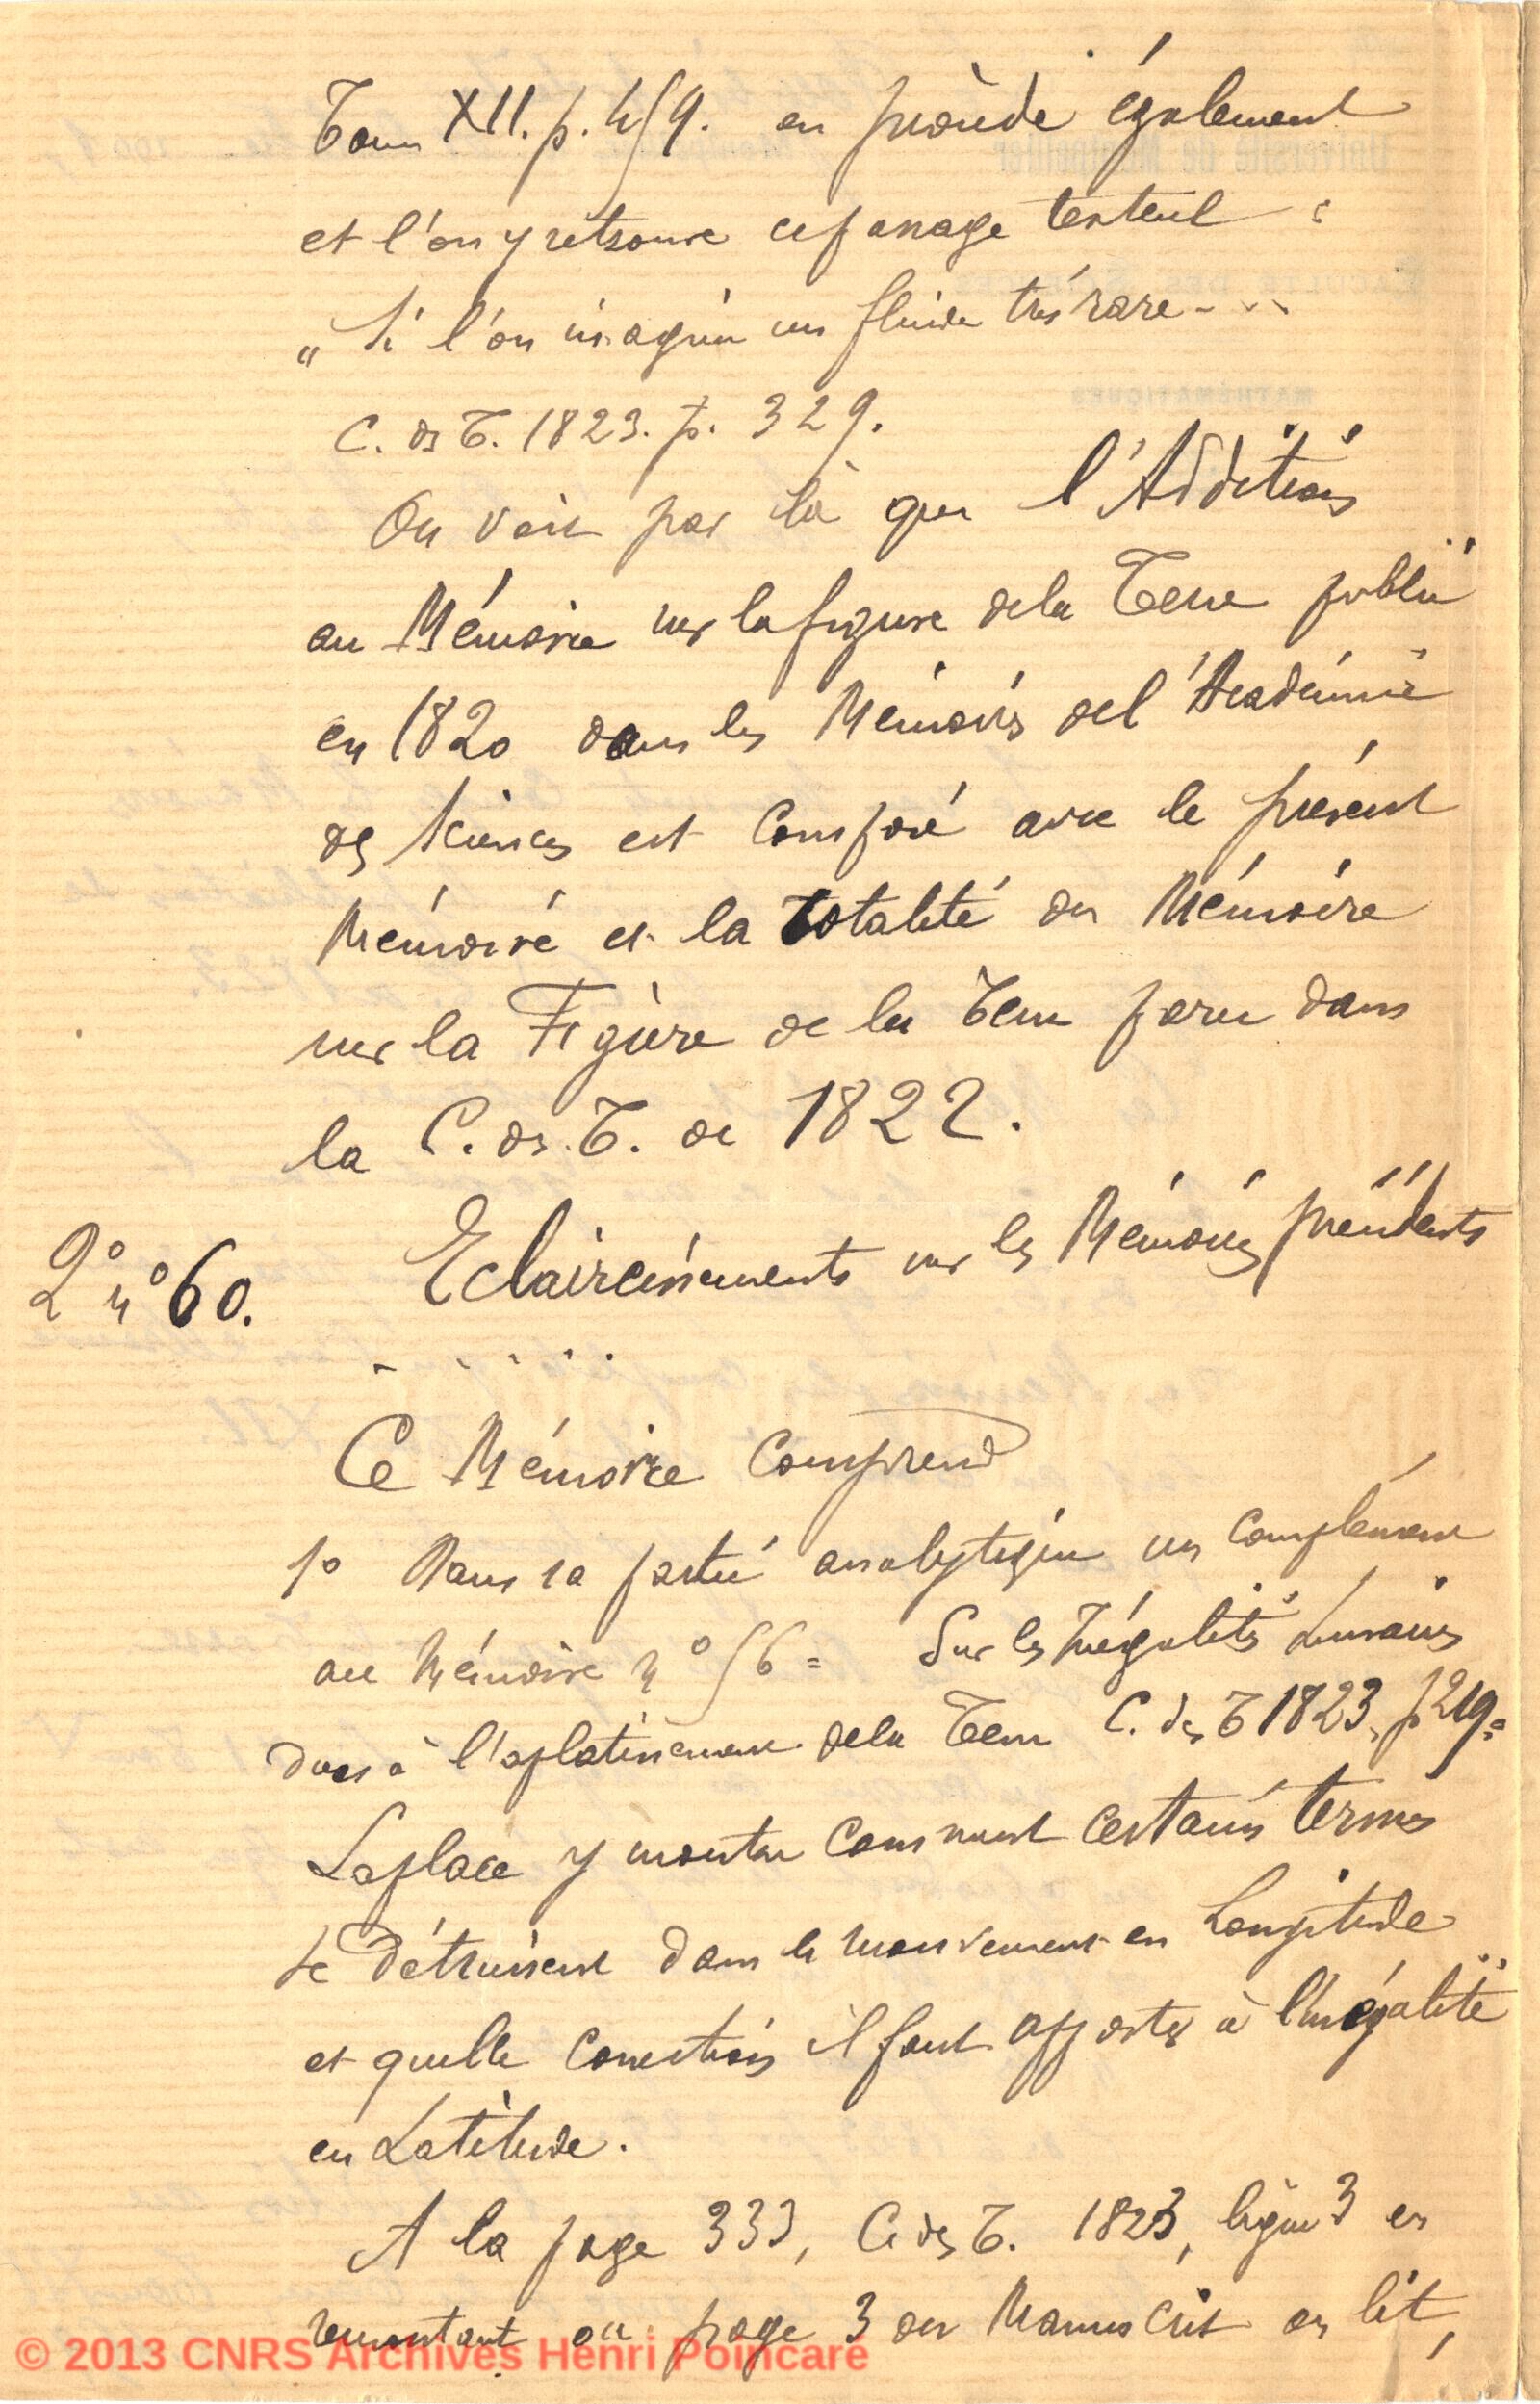 Tome XII. p. 459. en procède également
et l'on y retrouve ce passage textuel :
" Si l'on imagine un fluide très rare - - -
C. des T. 1823. p. 329.
On voit par là que l'Addition
au Mémoire sur la figure de la Terre publié
en 1820 dans les Mémoires de l'Académie
des Sciences est composé avec le présent
Mémoire et la totalité du Mémoire
sur la Figure de la Terre paru dans
la C. des. T. de 1822.
2° n° 60. Eclaircissements sur les Mémoires précédents
- - - - - -
Ce Mémoire comprend
1° Dans sa partie analytique un complément
au Mémoire n° 56 = Sur les Inégalités Lunaires
dues à l'aplatissement de la Terre C. des T 1823, p 219 =
Laplace y montre comment certains termes
se détruisent dans le mouvement en Longitude
et quelle correction il faut apporter à l'inégalité
en Latitude.
A la page 333, C des T. 1823, ligne 3 en
remontant ou page 3 du Manuscrit on lit,
© 2013 CNRS Archives Henri Poincaré